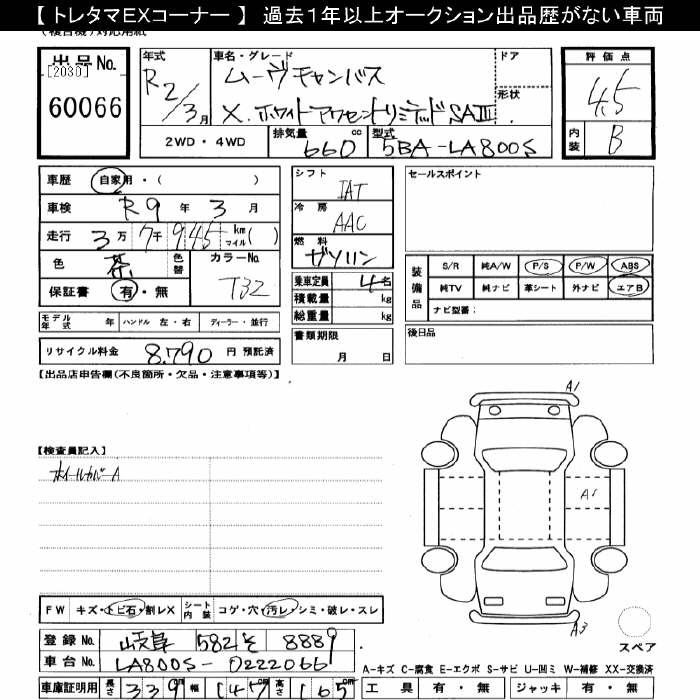 【トレタマEXコーナー】 過去1年以上オークション出品歴がない車両
出品No. 年式 車名・グレード ドア 評価点
[2030] R2/3月 ムーヴキャンバス 形状 4.5
60066 X.ホワイトアクセントリミテッドSAⅢ
2WD・4WD 排気量 660 cc 型式 5BA-LA800S 内装 B
車歴 自家用・( ) シフト IAT セールスポイント
車検 R9年3月 冷房 AAC
走行 3万7千945 km マイル( ) 燃料 ガソリン
色 茶 色替 カラーNo. T32 乗車定員 4名 装備品 S/R 純A/W P/S P/W ABS
保証書 有・無 積載量 kg 純TV 純ナビ 革シート 外ナビ エアB
総重量 kg ナビ型番:
モデル年式 年 ハンドル 左・右 ディーラー・並行 書類期限 月 日 後日品
リサイクル料金 8,790 円 預託済
【出品店申告欄(不良箇所・欠品・注意事項等)】
A1
【検査員記入】
ホイールカバーA
A1
FW キズ・トビ石・割レX シート内装 コゲ・穴・汚レ・シミ・破レ・スレ
A3
スペア
登録No. 岐阜 582 そ 8889
車台No. LA800S-0222066
A-キズ C-腐食 E-エクボ S-サビ U-凹ミ W-補修 XX-交換済
車庫証明用 長さ 339 cm 幅 147 cm 高さ 165 cm 工具 有・無 ジャッキ 有・無